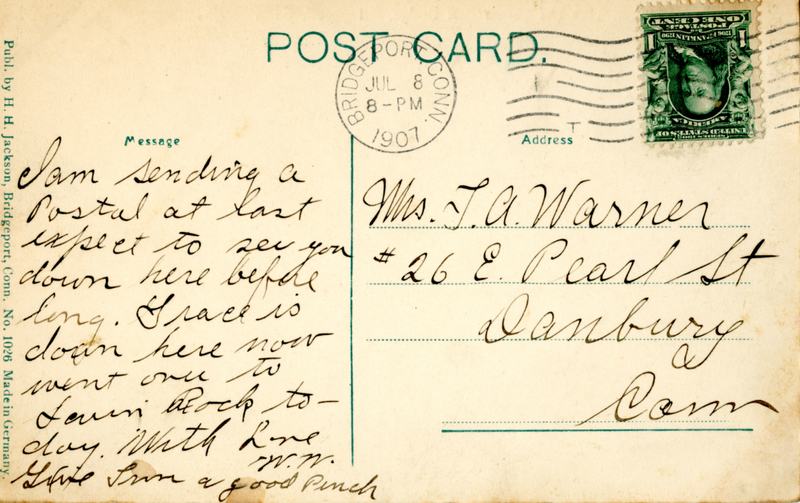 POST CARD.
BRIDGEPORT, CONN.
JUL 8
8-PM
1907
ONE CENT
POSTAGE
1 1
FRANKLIN
AMERICA
UNITED STATES OF
Message
I am sending a
Postal at last
expect to see you
down here before
long. Grace is
down here now
went over to
Rock to-
day. With Love
W.W.
Give a good Pinch
Address
Mrs. T. A. Warner
# 26 E. Pearl St
Danbury
Conn
Publ. by H. H. Jackson, Bridgeport, Conn. No. 1026 Made in Germany.